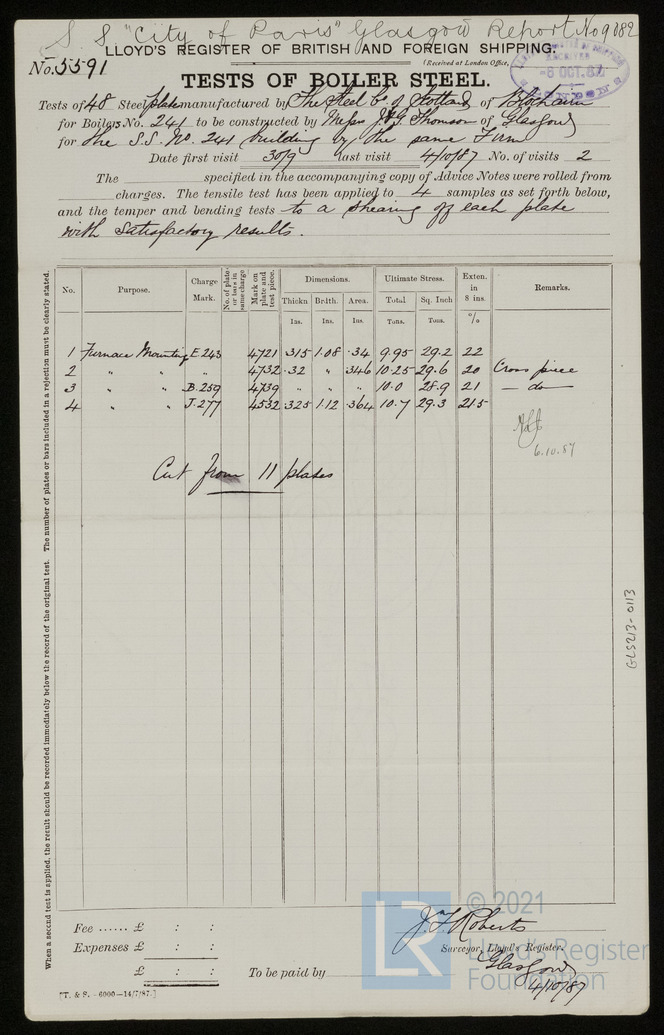 S S "City of Paris" Glasgow Report No 9082
LLOYD'S REGISTER OF BRITISH AND FOREIGN SHIPPING.
No. 5591
(Received at London Office,
8 OCT. 87
TESTS OF BOILER STEEL.
Tests of 48 Steel plates manufactured by The Steel Co of Scotland of Blochairn
for Boilers No. 241 to be constructed by Messrs J & G Thomson of Glasgow
for the S.S. No. 241 building by the same Firm
Date first visit 30/9 last visit 4/10/87 No. of visits 2
The specified in the accompanying copy of Advice Notes were rolled from
charges. The tensile test has been applied to 4 samples as set forth below,
and the temper and bending tests to a shearing off each plate
with satisfactory results.
No. Purpose. Charge Mark. No. of plates or bars in same charge Mark on plate and test piece. Dimensions. Ultimate Stress. Exten. in 8 ins. Remarks.
Thickn Brdth. Area. Total Sq. Inch
Ins. Ins. Tons. Tons. %
1 Furnace Mounting E.243 4721 .315 1.08 .34 9.95 29.2 22
2 " " 4732 .32 " .346 10.25 29.6 20 Cross piece
3 " " B.259 4739 " " " 10.0 28.9 21 — do —
4 " " J.277 4532 .325 1.12 .364 10.7 29.3 21.5
6.10.87
Cut from 11 plates
When a second test is applied, the result should be recorded immediately below the record of the original test. The number of plates or bars included in a rejection must be clearly stated.
GLS213-0113
Fee ...... £ : :
Expenses £ : :
£ : :
To be paid by
J. F. Roberts
Surveyor, Lloyd's Register.
Glasgow
4/10/87
[T. & S. - 6000-14/7/87.]
LR
© 2021
Lloyd's Register
Foundation